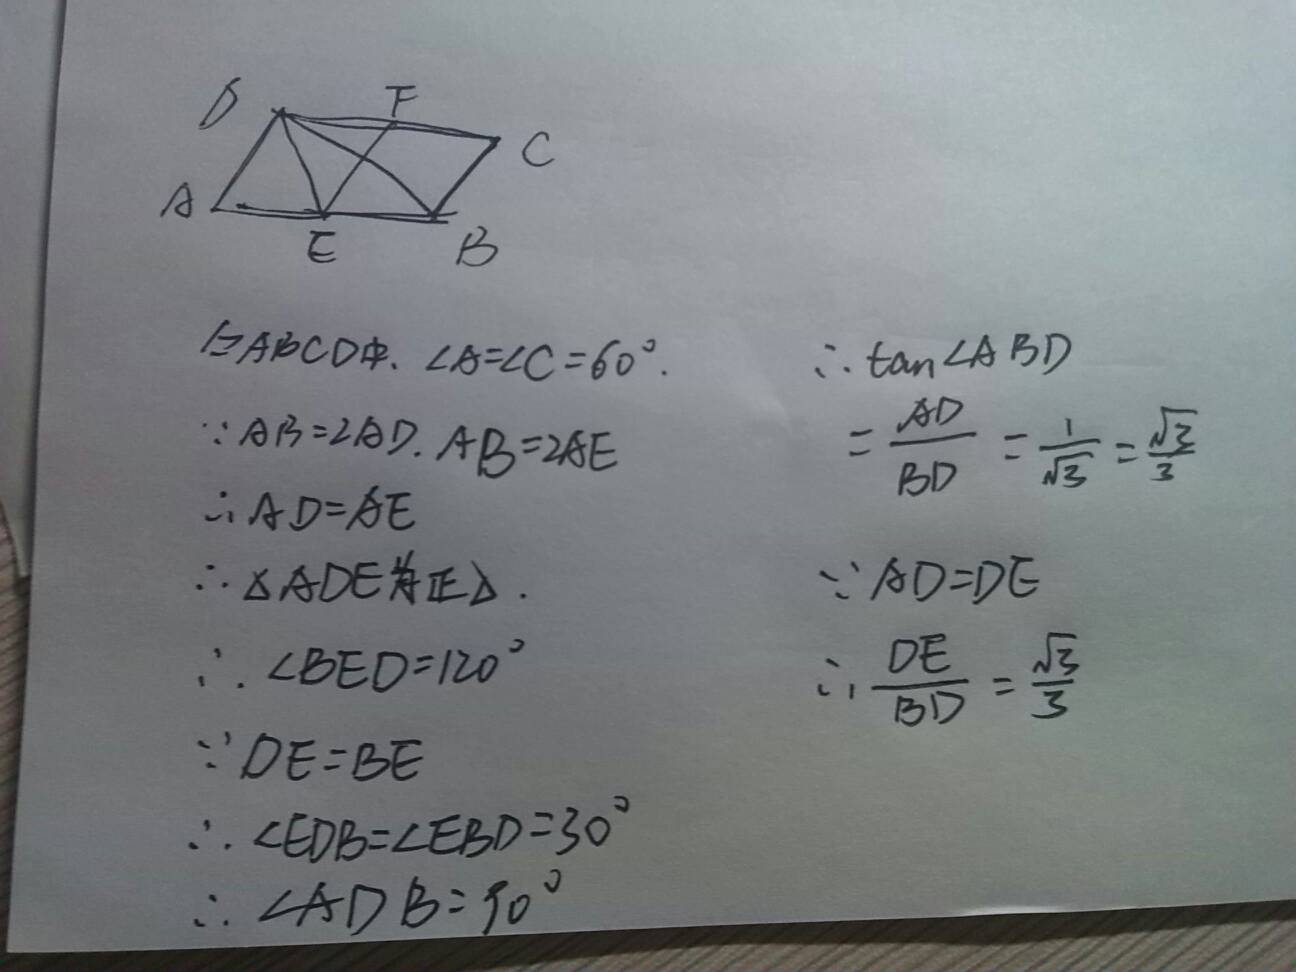 D F C
A E B
▱ABCD中. ∠A=∠C=60°.
∵AB=2AD. AB=2AE
∴AD=AE
∴△ADE为正△.
∴∠BED=120°
∵DE=BE
∴∠EDB=∠EBD=30°
∴∠ADB=90°
∴tan∠ABD
=AD/BD=1/√3=√3/3
∵AD=DE
∴DE/BD=√3/3